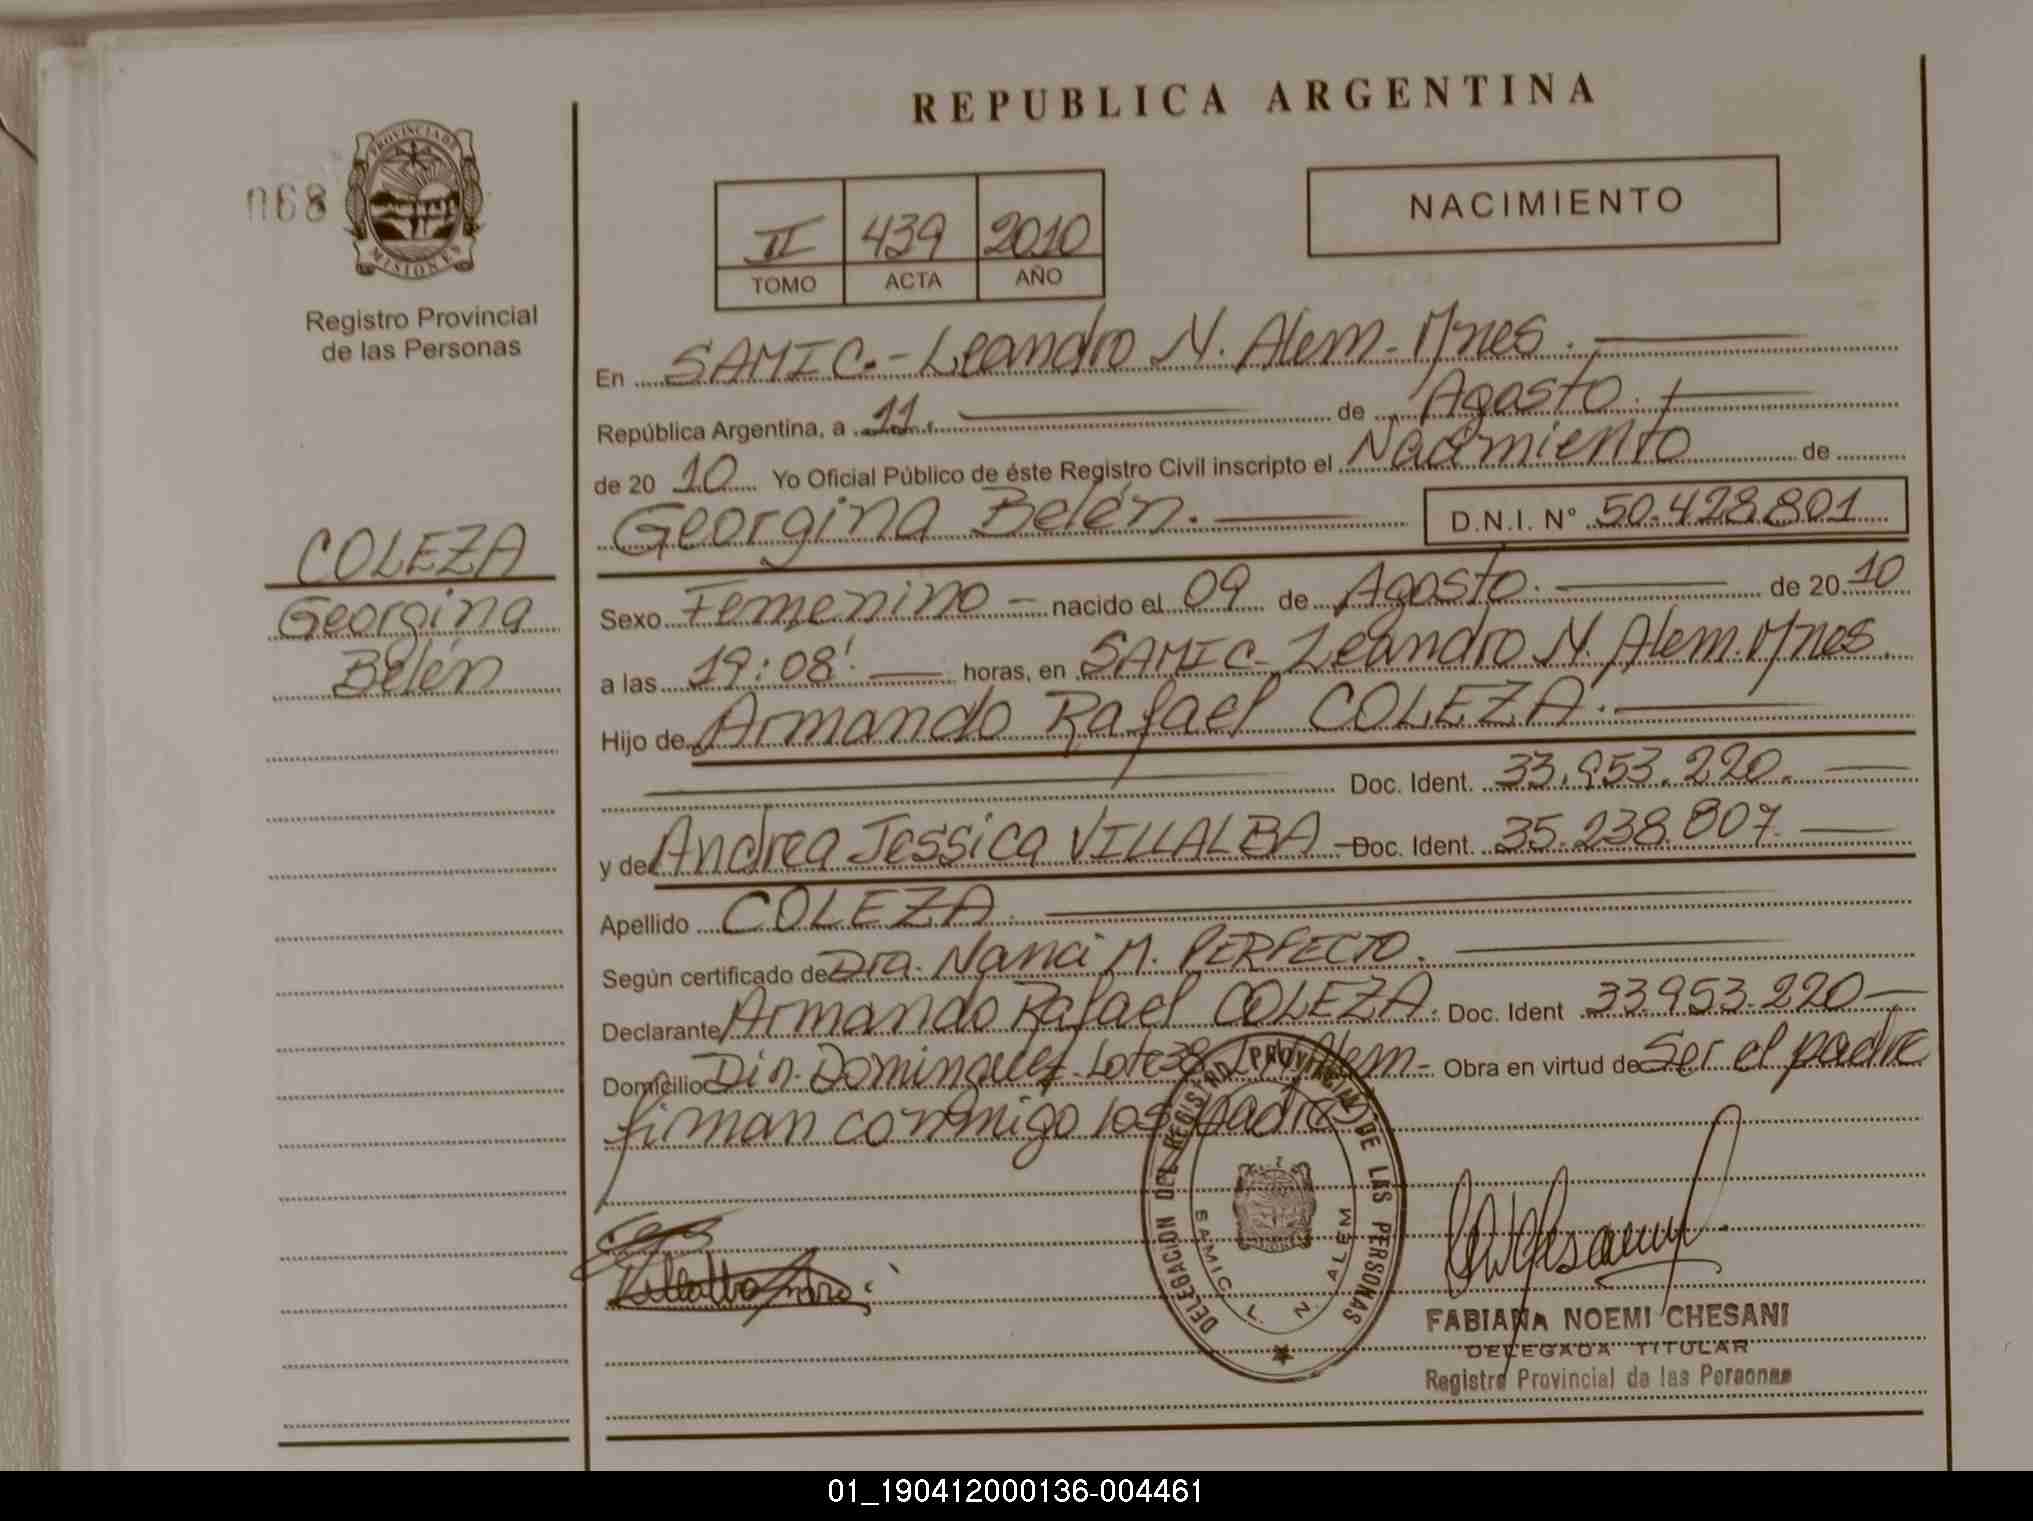 REPUBLICA ARGENTINA
068
PROVINCIA DE
MISIONES
Registro Provincial
de las Personas
II 439 2010
TOMO ACTA AÑO
NACIMIENTO
En SAMIC.- Leandro N. Alem- Mnes.
República Argentina, a 11. de Agosto.
de 20 10 Yo Oficial Público de éste Registro Civil inscripto el Nacimiento de
Georgina Belén. D.N.I. N° 50.428.801
COLEZA
Georgina
Belén
Sexo Femenino - nacido el 09 de Agosto. de 20 10
a las 19:08'. horas, en SAMIC- Leandro N. Alem. Mnes.
Hijo de Armando Rafael COLEZA.
Doc. Ident. 33.953.220.
y de Andrea Jessica VILLALBA - Doc. Ident. 35.238.807.
Apellido COLEZA.
Según certificado de Dra. Nanci M. PERFECTO.
Declarante Armando Rafael COLEZA. Doc. Ident 33.953.220-
Domicilio Lote 38 Alem- Obra en virtud de Ser el padre
firman conmigo los padres
DELEGACION DEL REGISTRO PROVINCIAL DE LAS PERSONAS
SAMIC L. N. ALEM
FABIANA NOEMI CHESANI
DELEGADA TITULAR
Registro Provincial de las Personas
01_190412000136-004461